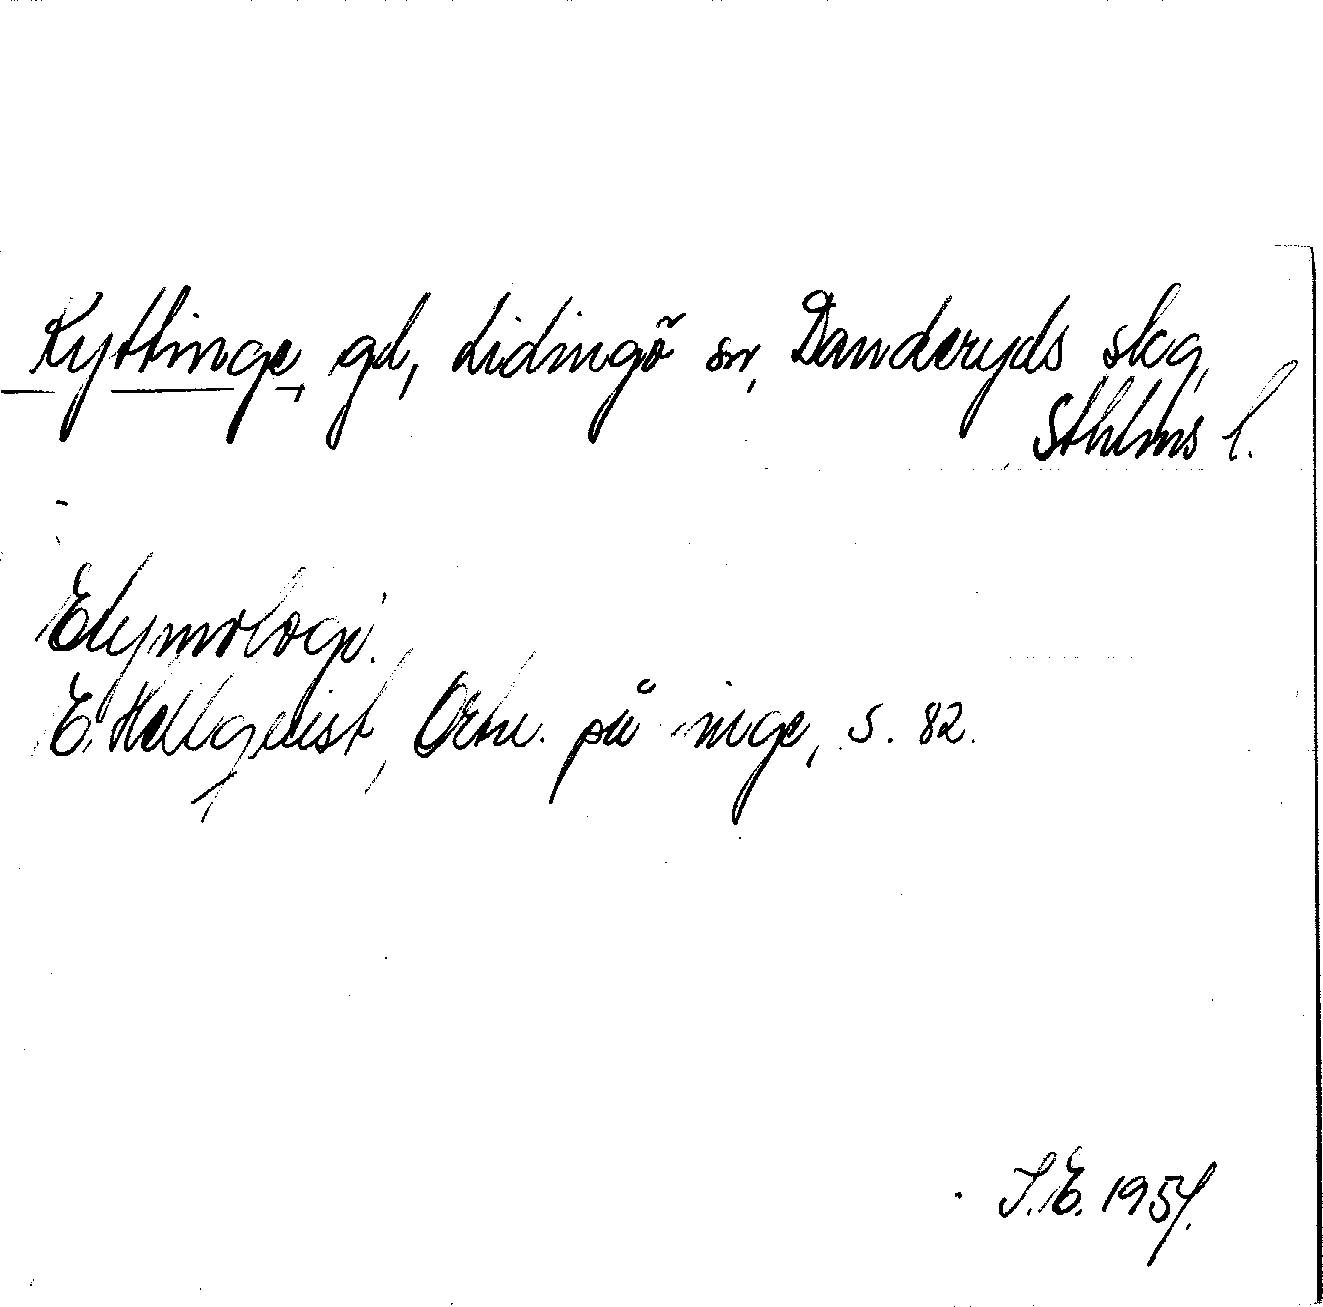 Kyttinge, gd, Lidingö sn, Danderyds skg,
Sthlms l.
Etymologi.
E. Hellquist, Ortn. på -inge, s. 82.
I.E. 1954.